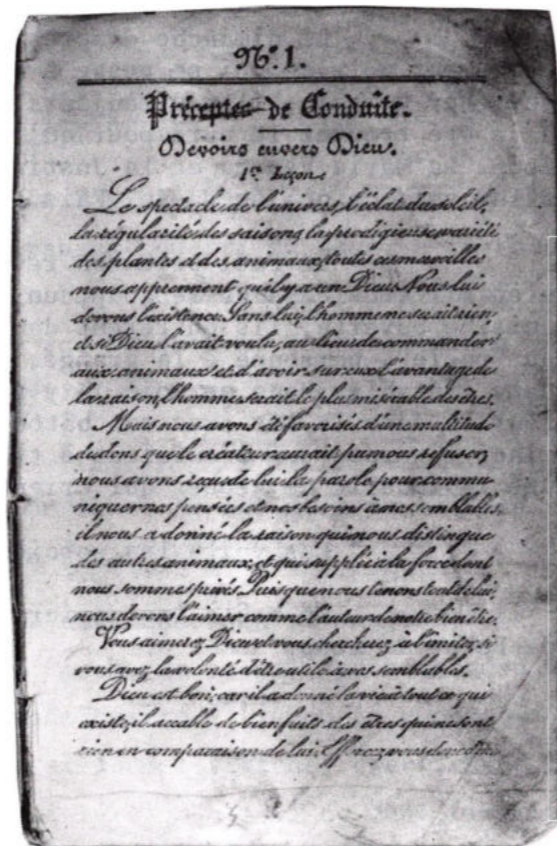 N.º 1.
Préceptes de Conduite.
Devoirs envers Dieu.
1.re Leçon
Le spectacle de l'univers, l'éclat du soleil,
la régularité des saisons, la prodigieuse variété
des plantes et des animaux, toutes ces merveilles
nous apprennent qu'il y a un Dieu. Nous lui
devons l'existence. Sans lui, l'homme ne serait rien,
et si Dieu l'avait voulu, au lieu de commander
aux animaux et d'avoir sur eux l'avantage de
la raison, l'homme serait le plus misérable des êtres.
Mais nous avons été favorisés d'une multitude
de dons que le créateur aurait pu nous refuser,
nous avons reçu de lui la parole pour commu
niquer nos pensées et nos besoins à nos semblables,
il nous a donné la raison qui nous distingue
des autres animaux, et qui supplée à la force dont
nous sommes privés. Puisque nous tenons tout de lui,
nous devons l'aimer comme l'auteur de notre bien être.
Vous aimerez Dieu et vous chercherez à l'imiter, si
vous avez la volonté d'être utile à vos semblables.
Dieu est bon, car il a donné la vie à tout ce qui
existe, il accable de bienfaits des êtres qui ne sont
rien en comparaison de lui. Efforcez vous donc